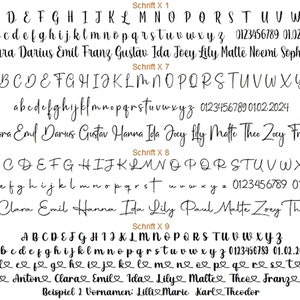 Schrift X 1
D E F G H I J K L M N O P Q R S T U V W
b c d e f g h i j k l m n o p q r s t u v w x y z 0123456789 01.02
ara Darius Emil Franz Gustav Ida Joey Lily Malte Noemi Soph
Schrift X 7
B C D E F G H I J K L M N O P Q R S T U V W X Y
a b c d e f g h i j k l m n o p q r s t u v w x y z 0123456789 01.02.2024
ara Emil Darius Gustav Hanna Ida Joey Lily Malte Theo Zoey Fr
Schrift X 8
C D E F G H I J K L M N O P Q R S T U V W X
d e f g h i j k l m n o p q r s t u v w x y z 0123456789 01
Clara Emil Hanna Ida Lily Paul Malte Zoey Th
Schrift X 9
A B C D E F G H I J K L M N O P Q R S T U V W X Y Z
b c d e f g h i j k l m n o p q r s t u v w x y z 0123456789 01.02.
c d e f g h i j k l m n o p q r s t
Anton Clara Emil Ida Lily Malte Theo Franz
Beispiel 2 Vornamen: Lilli Marie Karl Theodor